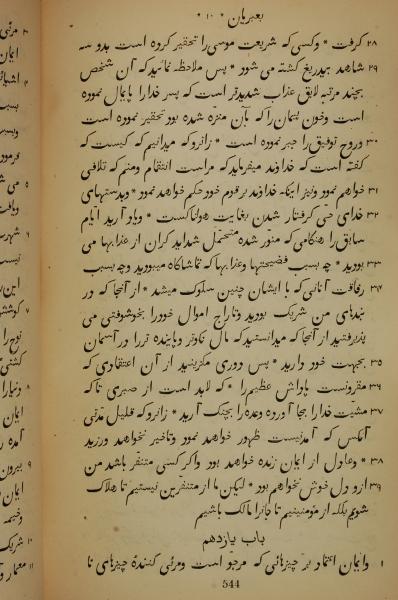 بعبریان * ۱۰ *
۲۸ گرفت * و کسی که شریعت موسی را تحقیر کرده است بدو سه
۲۹ شاهد بیدریغ کشته می شود * پس ملاحظه نمائید که آن شخص
بچند مرتبه لایق عذاب شدیدتر است که پسر خدا را پایمال نموده
است و خون پیمان را که بآن منزه شده بود تحقیر نموده است
۳۰ و روح توفیق را جبر نموده است * زانرو که میدانیم که کیست که
گفته است که خداوند میفرماید که مراست انتقام و منم که تلافی
۳۱ خواهم نمود و نیز اینکه خداوند بر قوم خود حکم خواهد نمود * و بدستهای
۳۲ خدای حیّ گرفتار شدن بغایت هولناکست * و یاد آرید ایام
سابق را هنگامی که منور شده متحمل شداید گران از عذابها می
۳۳ بودید * چه بسبب فضیحتها و عذابها که تماشاگاه میبودید و چه بسبب
۳۴ رفاقت آنانی که با ایشان چنین سلوک میشد * از آنجا که در
بندهای من شریک بودید و تاراج اموال خود را بخوشوقتی می
پذیرفتید از آنجا که میدانستید که مال نکوتر و پاینده تر را در آسمان
۳۵ بجهت خود دارید * پس دوری مگزینید از آن اعتقادی که
۳۶ مقرونست پاداش عظیم را * که لابد است از صبری تا که
۳۷ مشیّت خدا را بجا آورده وعده را بچنگ آرید * زانرو که قلیل مدتی
آنکس که آمدنیست ظهور خواهد نمود و تاخیر نخواهد ورزید
۳۸ * و عادل از ایمان زنده خواهد بود و اگر کسی متنفر باشد من
۳۹ از و دل خوش نخواهم بود * لیکن ما از متنفرین نیستیم تا هلاک
شویم بلکه از مؤمنینیم تا جانرا مالک باشیم
باب یازدهم
۱ و ایمان اعتماد بر چیزهائی که مرجوّ است و مرئی کنندهٔ چیزهای نا
544